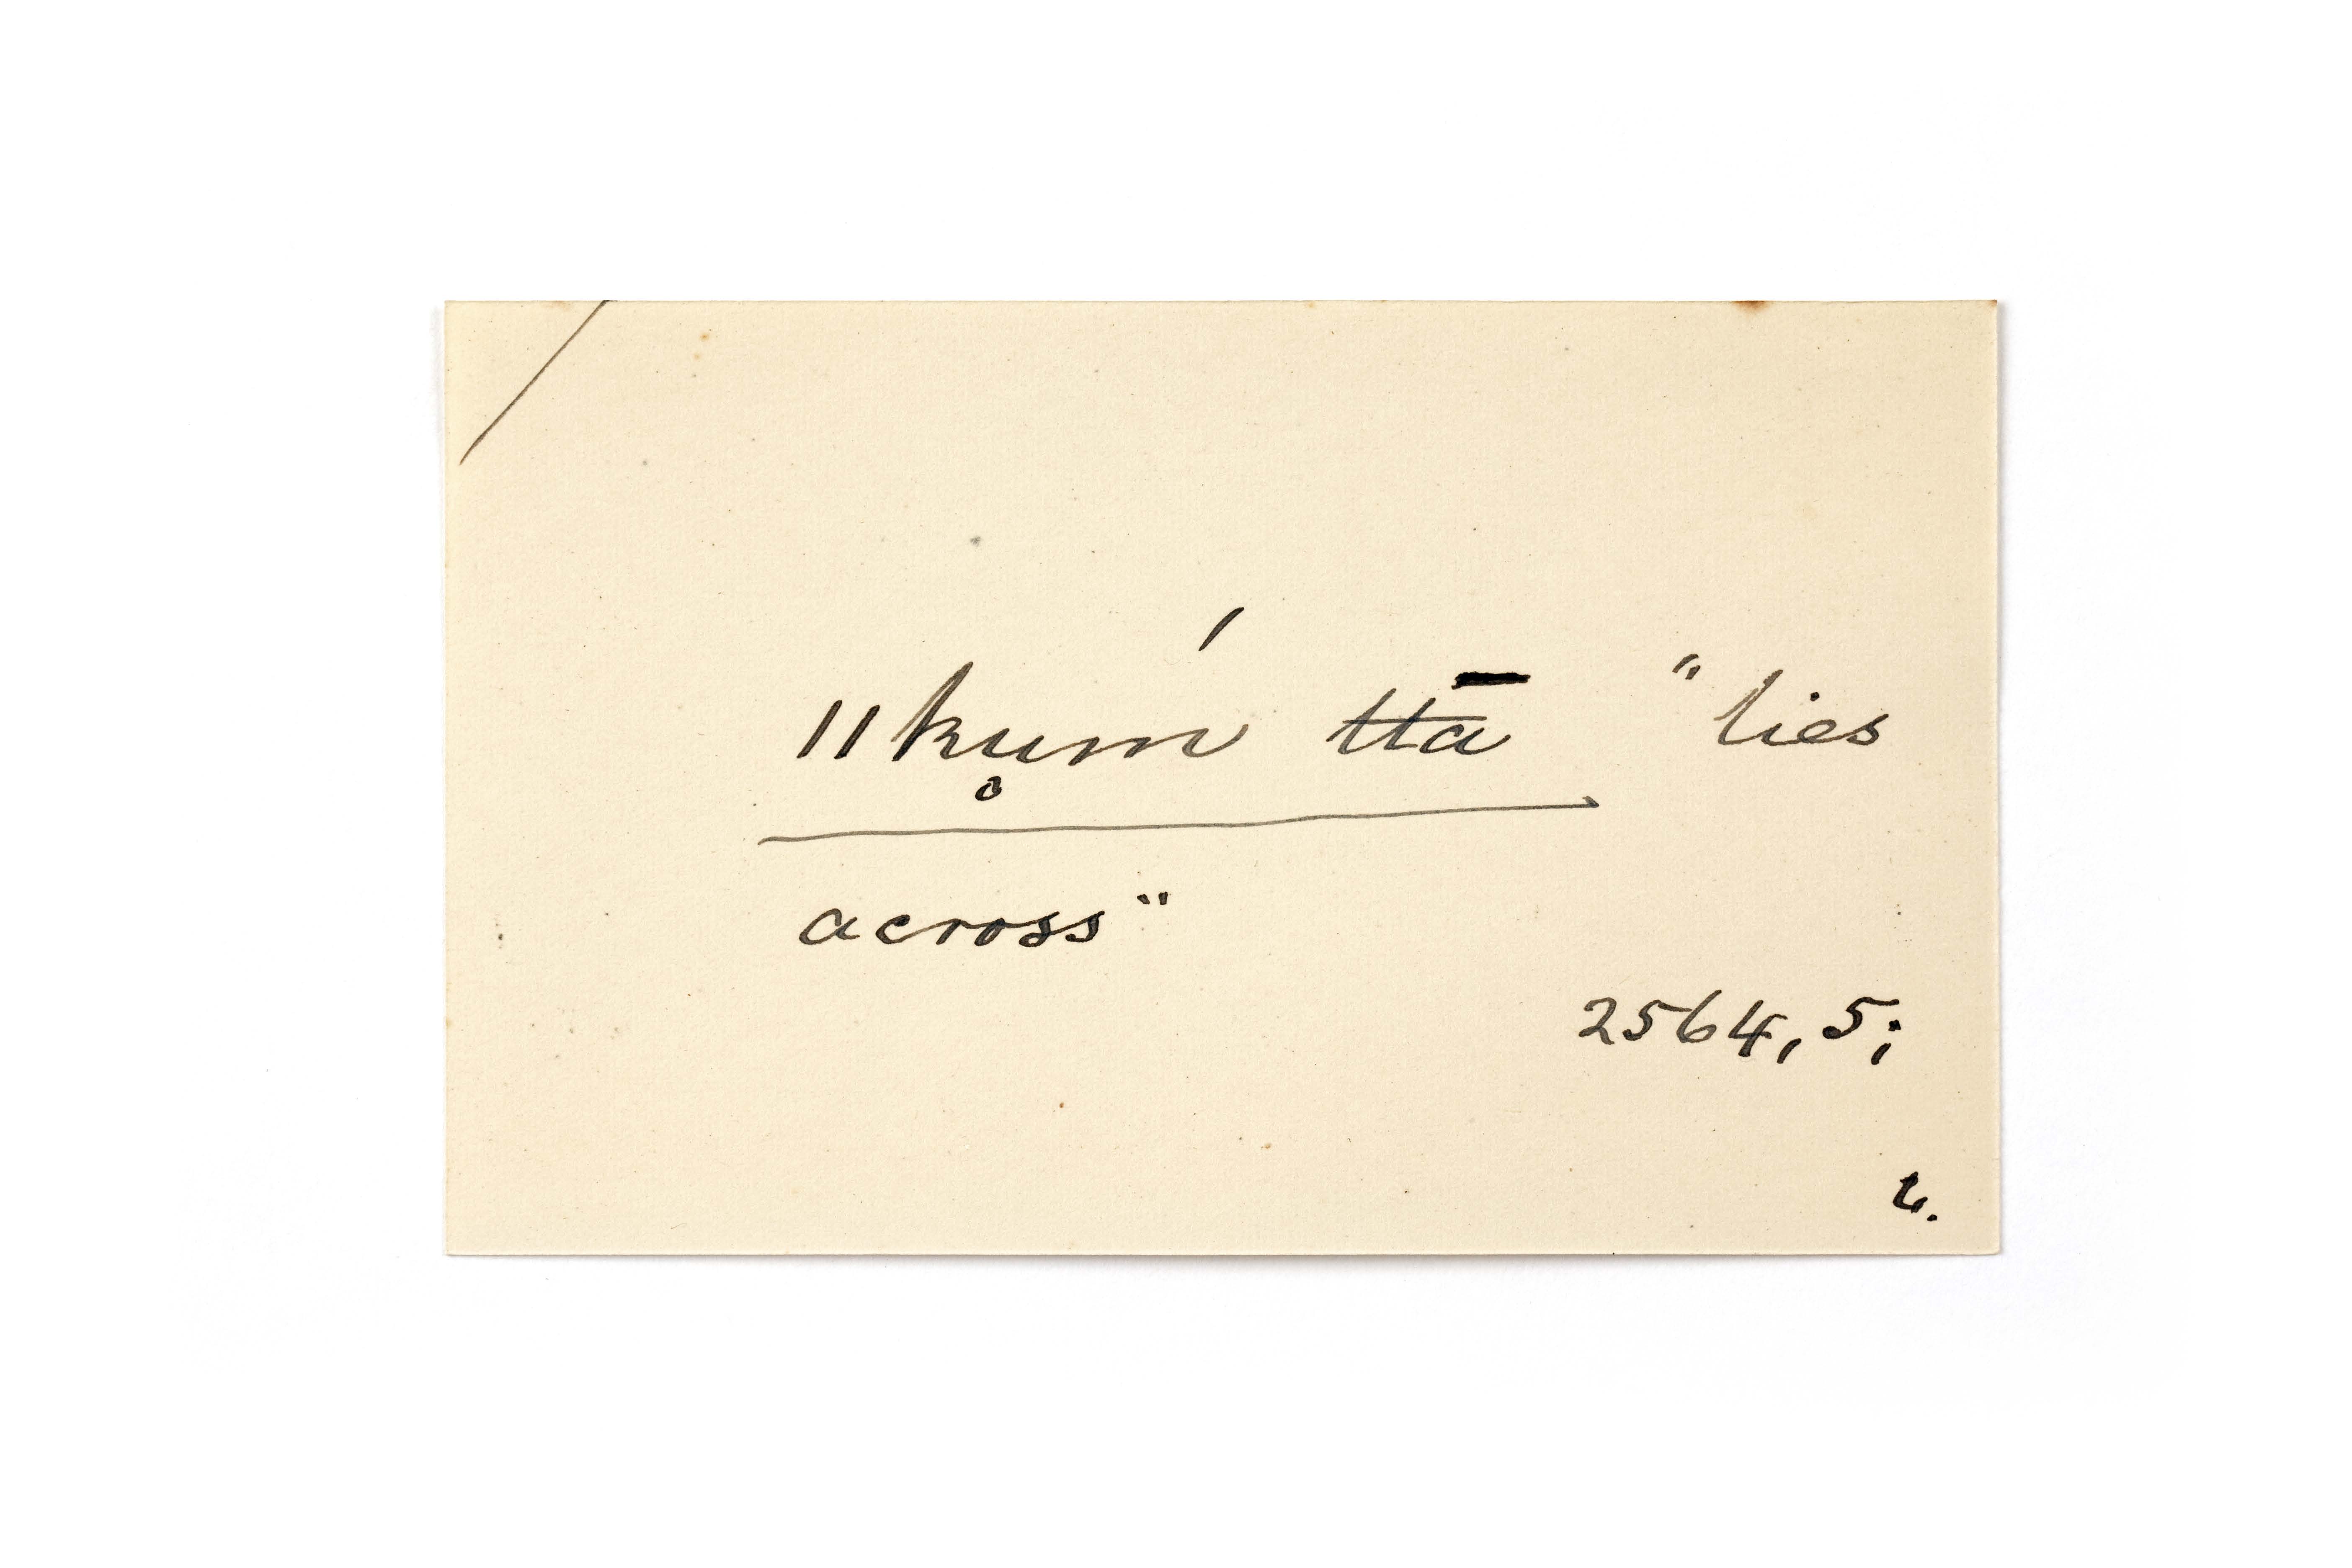 ǁku̥ḿ ttā "lies
across"
2564, 5;
L.